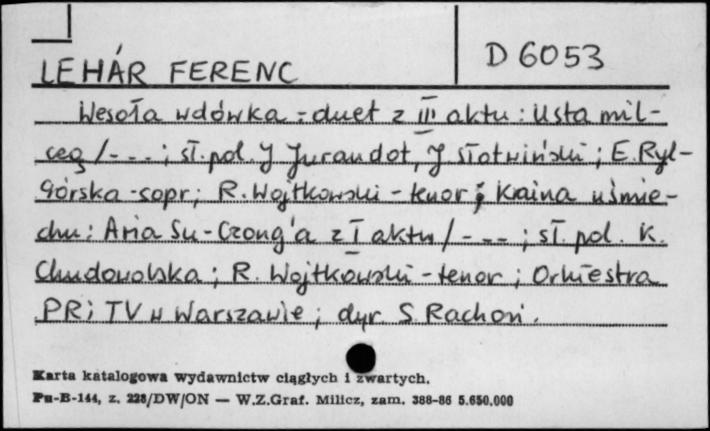 D 6053
LEHÁR FERENC
Wesoła wdówka : duet z III aktu : Usta mil-
czą /--- ; sł. pol. J Jurandot, J Słotwiński ; E. Ryl-
Górska - sopr ; R. Wojtkowski - tenor ; Kraina uśmie-
chu : Aria Su-Czong'a z I aktu /--- ; sł. pol. K.
Chudowolska ; R. Wojtkowski - tenor ; Orkiestra
PR i TV w Warszawie ; dyr. S. Rachoń.
Karta katalogowa wydawnictw ciągłych i zwartych.
Pu-B-144, z. 228/DW/ON — W.Z.Graf. Milicz, zam. 388-86 5.650.000